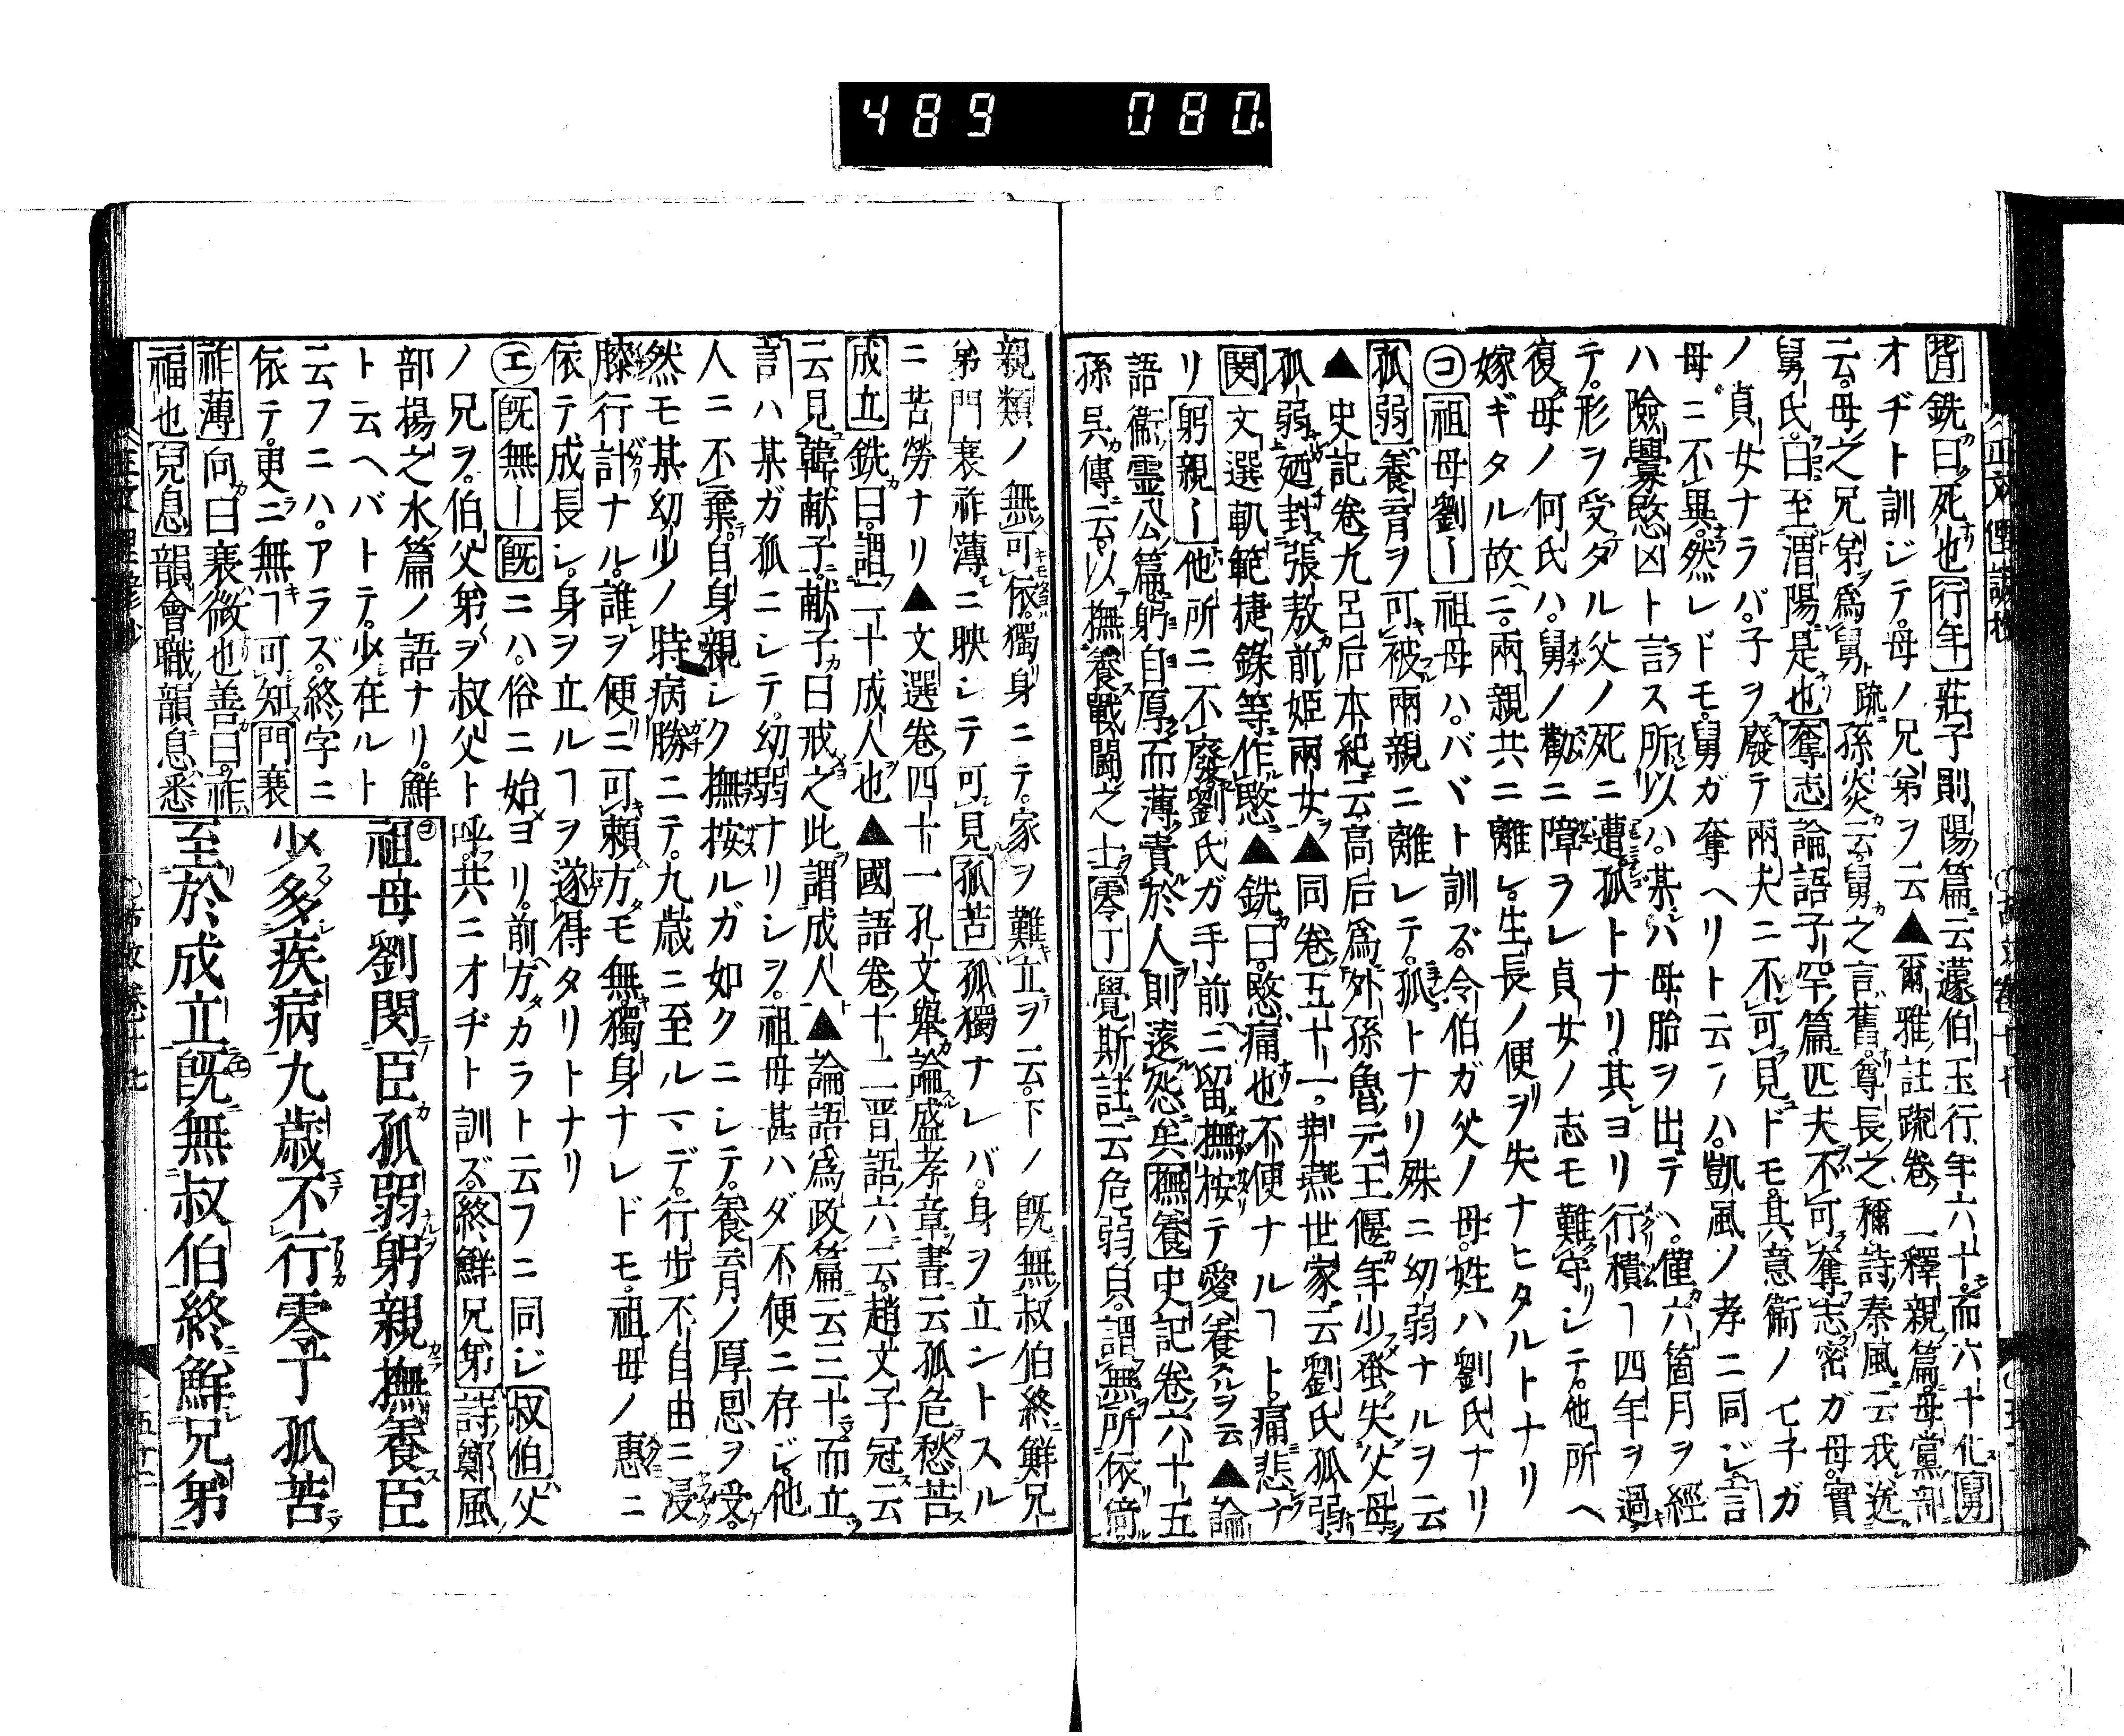 489 080.
背銑曰死也行年莊子則陽篇云蘧伯玉行年六十而六十化舅
オヂト訓ジテ母ノ兄弟ヲ云▲爾雅註疏卷一釋親篇母黨部
云母之兄弟爲舅疏孫炎云舅之言舊尊長之稱詩秦風云我送
舅氏曰至渭陽是也奪志論語子罕篇匹夫不可奪志密ガ母實
ノ貞女ナラバ子ヲ廢テ兩夫ニ不可見ドモ其意衛ノ七子ガ
母ニ不異然レドモ舅ガ奪ヘリト云フハ凱風ノ孝ニ同ジ言
ハ險釁愍凶ト言ス所以ハ某ハ母胎ヲ出テヽ僅六箇月ヲ經
テ形ヲ受タル父ノ死ニ遭孤トナリ其ヨリ行積ヿ四年ヲ過
復母ノ何氏ハ舅ノ勸ニ障ヲレ貞女ノ志モ難守シテ他所ヘ
嫁ギタル故ニ兩親共ニ離レ生長ノ便ヲ失ナヒタルトナリ
コ祖母劉ー祖母ハバヾト訓ズ令伯ガ父ノ母姓ハ劉氏ナリ
孤弱養育ヲ可被兩親ニ離レテ孤トナリ殊ニ幼弱ナルヲ云
▲史記卷九呂后本紀云高后爲外孫魯元王偃年少蚤失父母
孤弱廼封張敖前姫兩女▲同卷五十一荆燕世家云劉氏孤弱
閔文選䡄範捷錄等作愍▲銑曰愍痛也不便ナルヿト痛悲ナ
リ躬親ー他所ニ不廢劉氏ガ手前ニ留撫桉テ愛養スルヲ云▲論
語衞靈公篇躬自厚而薄責於人則遠怨矣撫養史記卷六十五
孫呉傳云以撫養戰鬪之士零丁覺斯註云危弱皃謂無所依倚
親類ノ無可依獨身ニテ家ヲ難立ヲ云下ノ旣無叔伯終鮮兄
弟門衰祚薄ニ映シテ可見孤苦孤獨ナレバ身ヲ立ントスル
ニ苦勞ナリ▲文選卷四十一孔文舉論盛孝章書云孤危愁苦
成立銑曰謂二十成人也▲國語卷十二晋語六云趙文子冠云
云見韓献子献子曰戒之此謂成人▲論語爲政篇云三十而立
言ハ某ガ孤ニシテ幼弱ナリシヲ祖母甚ハダ不便ニ存ジ他
人ニ不棄自身親シク撫桉ルガ如クニシテ養育ノ厚恩ヲ受
然モ某幼少ノ時病勝ニテ九歳ニ至ルマデ行步不自由ニ浸
膝行計ナル誰ヲ便ニ可頼方モ無獨身ナレドモ祖母ノ惠ニ
依テ成長シ身ヲ立ルヿヲ遂得タリトナリ
エ旣無ー旣ニハ俗ニ始ヨリ前方カラト云フニ同ジ叔伯父
ノ兄ヲ伯父弟ヲ叔父ト呼共ニオヂト訓ズ終鮮兄弟詩鄭風
部揚之水篇ノ語ナリ鮮
ト云ヘバトテ少在ルト
云フニハアラズ終字ニ
依テ更ニ無ヿ可知門衰
祚薄向曰衰微也善曰祚
福也兒息韻會職韻息悉
祖母劉閔臣孤弱躬親撫養臣
少多疾病九歳不行零丁孤苦
至於成立旣無叔伯終鮮兄弟